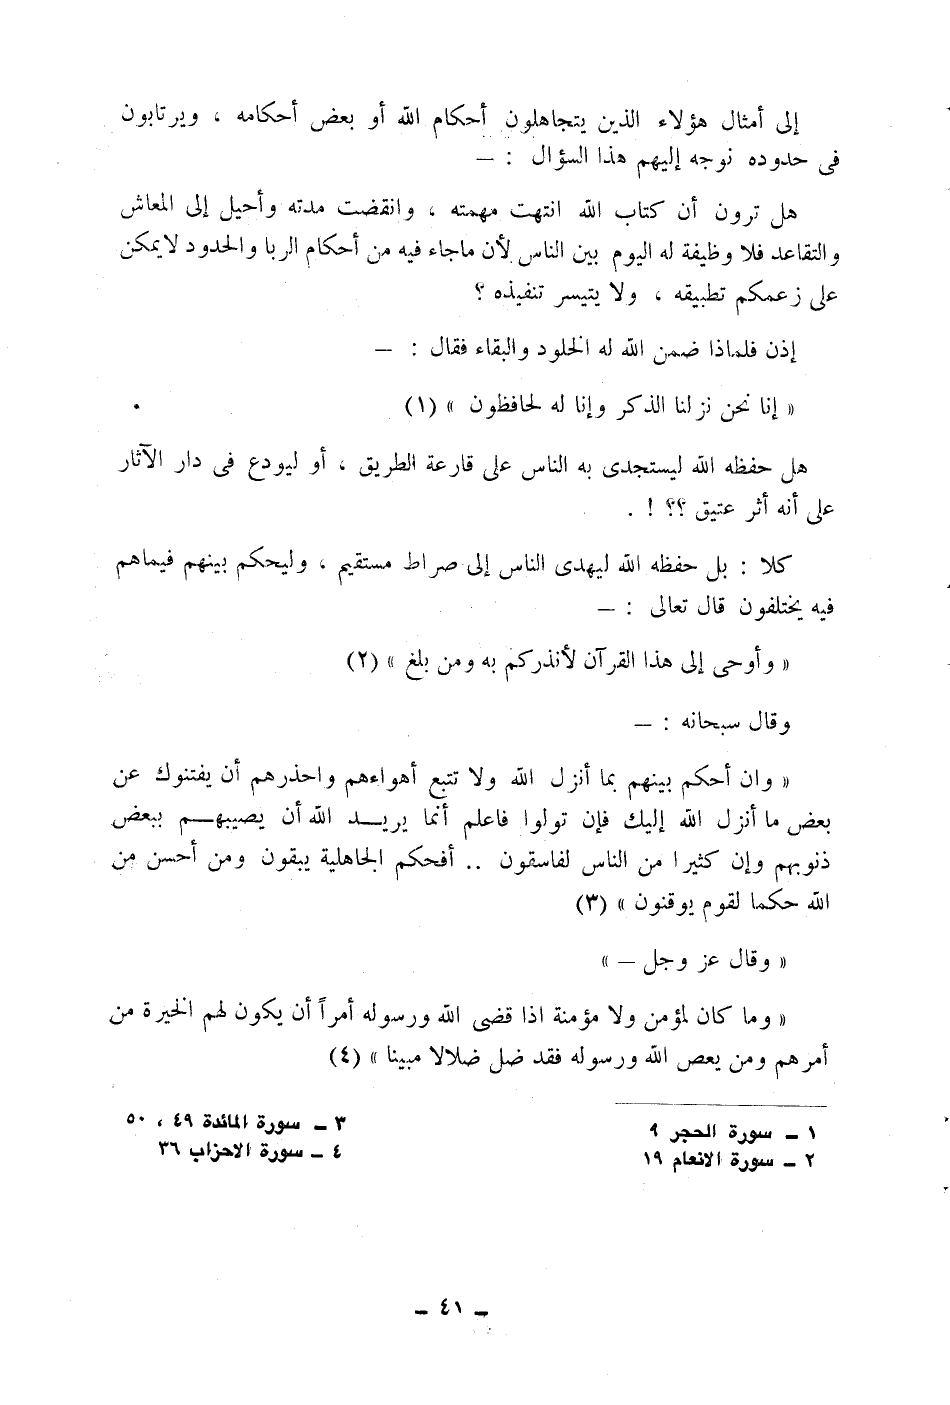 إلى أمثال هؤلاء الذين يتجاهلون أحكام الله أو بعض أحكامه ، ويرتابون
فى حدوده نوجه إليهم هذا السؤال : —
هل ترون أن كتاب الله انتهت مهمته ، وانقضت مدته وأحيل إلى المعاش
والتقاعد فلا وظيفة له اليوم بين الناس لأن ماجاء فيه من أحكام الربا والحدود لايمكن
على زعمكم تطبيقه ، ولا يتيسر تنفيذه ؟
إذن فلماذا ضمن الله له الخلود والبقاء فقال : —
« إنا نحن نزلنا الذكر وإنا له لحافظون » (١)
هل حفظه الله ليستجدى به الناس على قارعة الطريق ، أو ليودع فى دار الآثار
على أنه أثر عتيق ؟؟ ! .
كلا : بل حفظه الله ليهدى الناس إلى صراط مستقيم ، وليحكم بينهم فيماهم
فيه يختلفون قال تعالى : —
« وأوحى إلى هذا القرآن لأنذركم به ومن بلغ » (٢)
وقال سبحانه : —
« وان أحكم بينهم بما أنزل الله ولا تتبع أهواءهم واحذرهم أن يفتنوك عن
بعض ما أنزل الله إليك فإن تولوا فاعلم أنما يريـــد الله أن يصيبهـــم ببعض
ذنوبهم وإن كثيرا من الناس لفاسقون .. أفحكم الجاهلية يبقون ومن أحسن من
الله حكما لقوم يوقنون » (٣)
« وقال عز وجل — »
« وما كان لمؤمن ولا مؤمنة اذا قضى الله ورسوله أمراً أن يكون لهم الخيرة من
أمرهم ومن يعص الله ورسوله فقد ضل ضلالا مبينا » (٤)
١ – سورة الحجر ٩
٢ – سورة الانعام ١٩
٣ – سورة المائدة ٤٩ ، ٥٠
٤ – سورة الاحزاب ٣٦
– ٤١ –